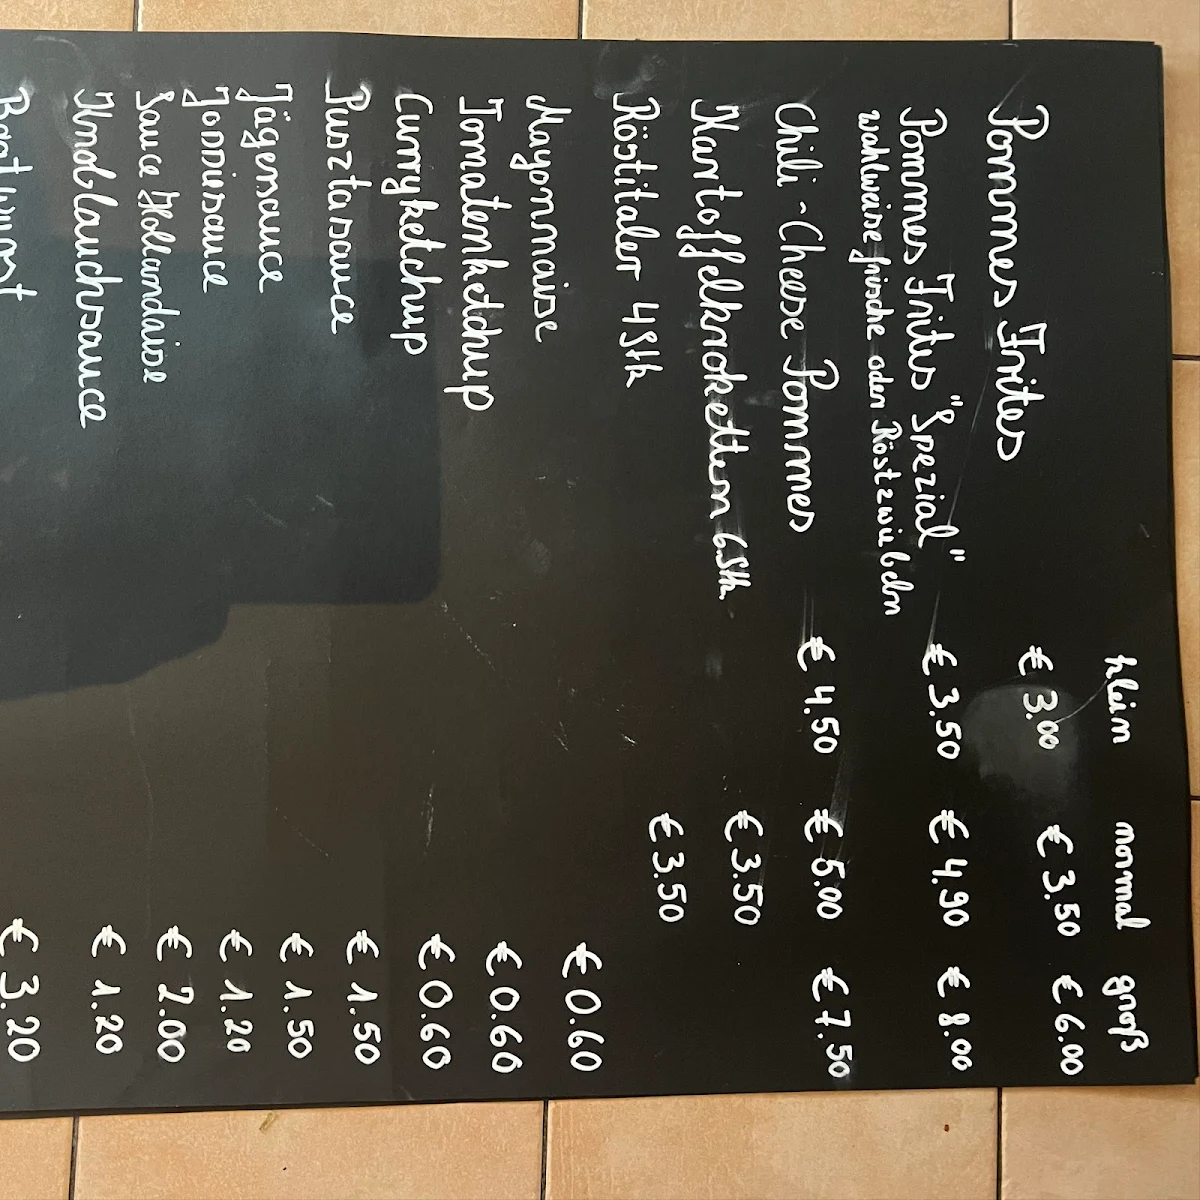 klein normal groß
Pommes Frites € 3.00 € 3.50 € 6.00
Pommes Frites "Spezial" € 3.50 € 4.90 € 8.00
wahlweise frische oder Röstzwiebeln
Chili-Cheese Pommes € 4.50 € 5.00 € 7.50
Kartoffelkroketten 6Stk. € 3.50
Röstitaler 4Stk € 3.50
Mayonnaise € 0.60
Tomatenketchup € 0.60
Curryketchup € 0.60
Pusztasauce € 1.50
Jägersauce € 1.50
Joppiesauce € 1.20
Sauce Hollandaise € 2.00
Knoblauchsauce € 1.20
Bratwurst € 3.20